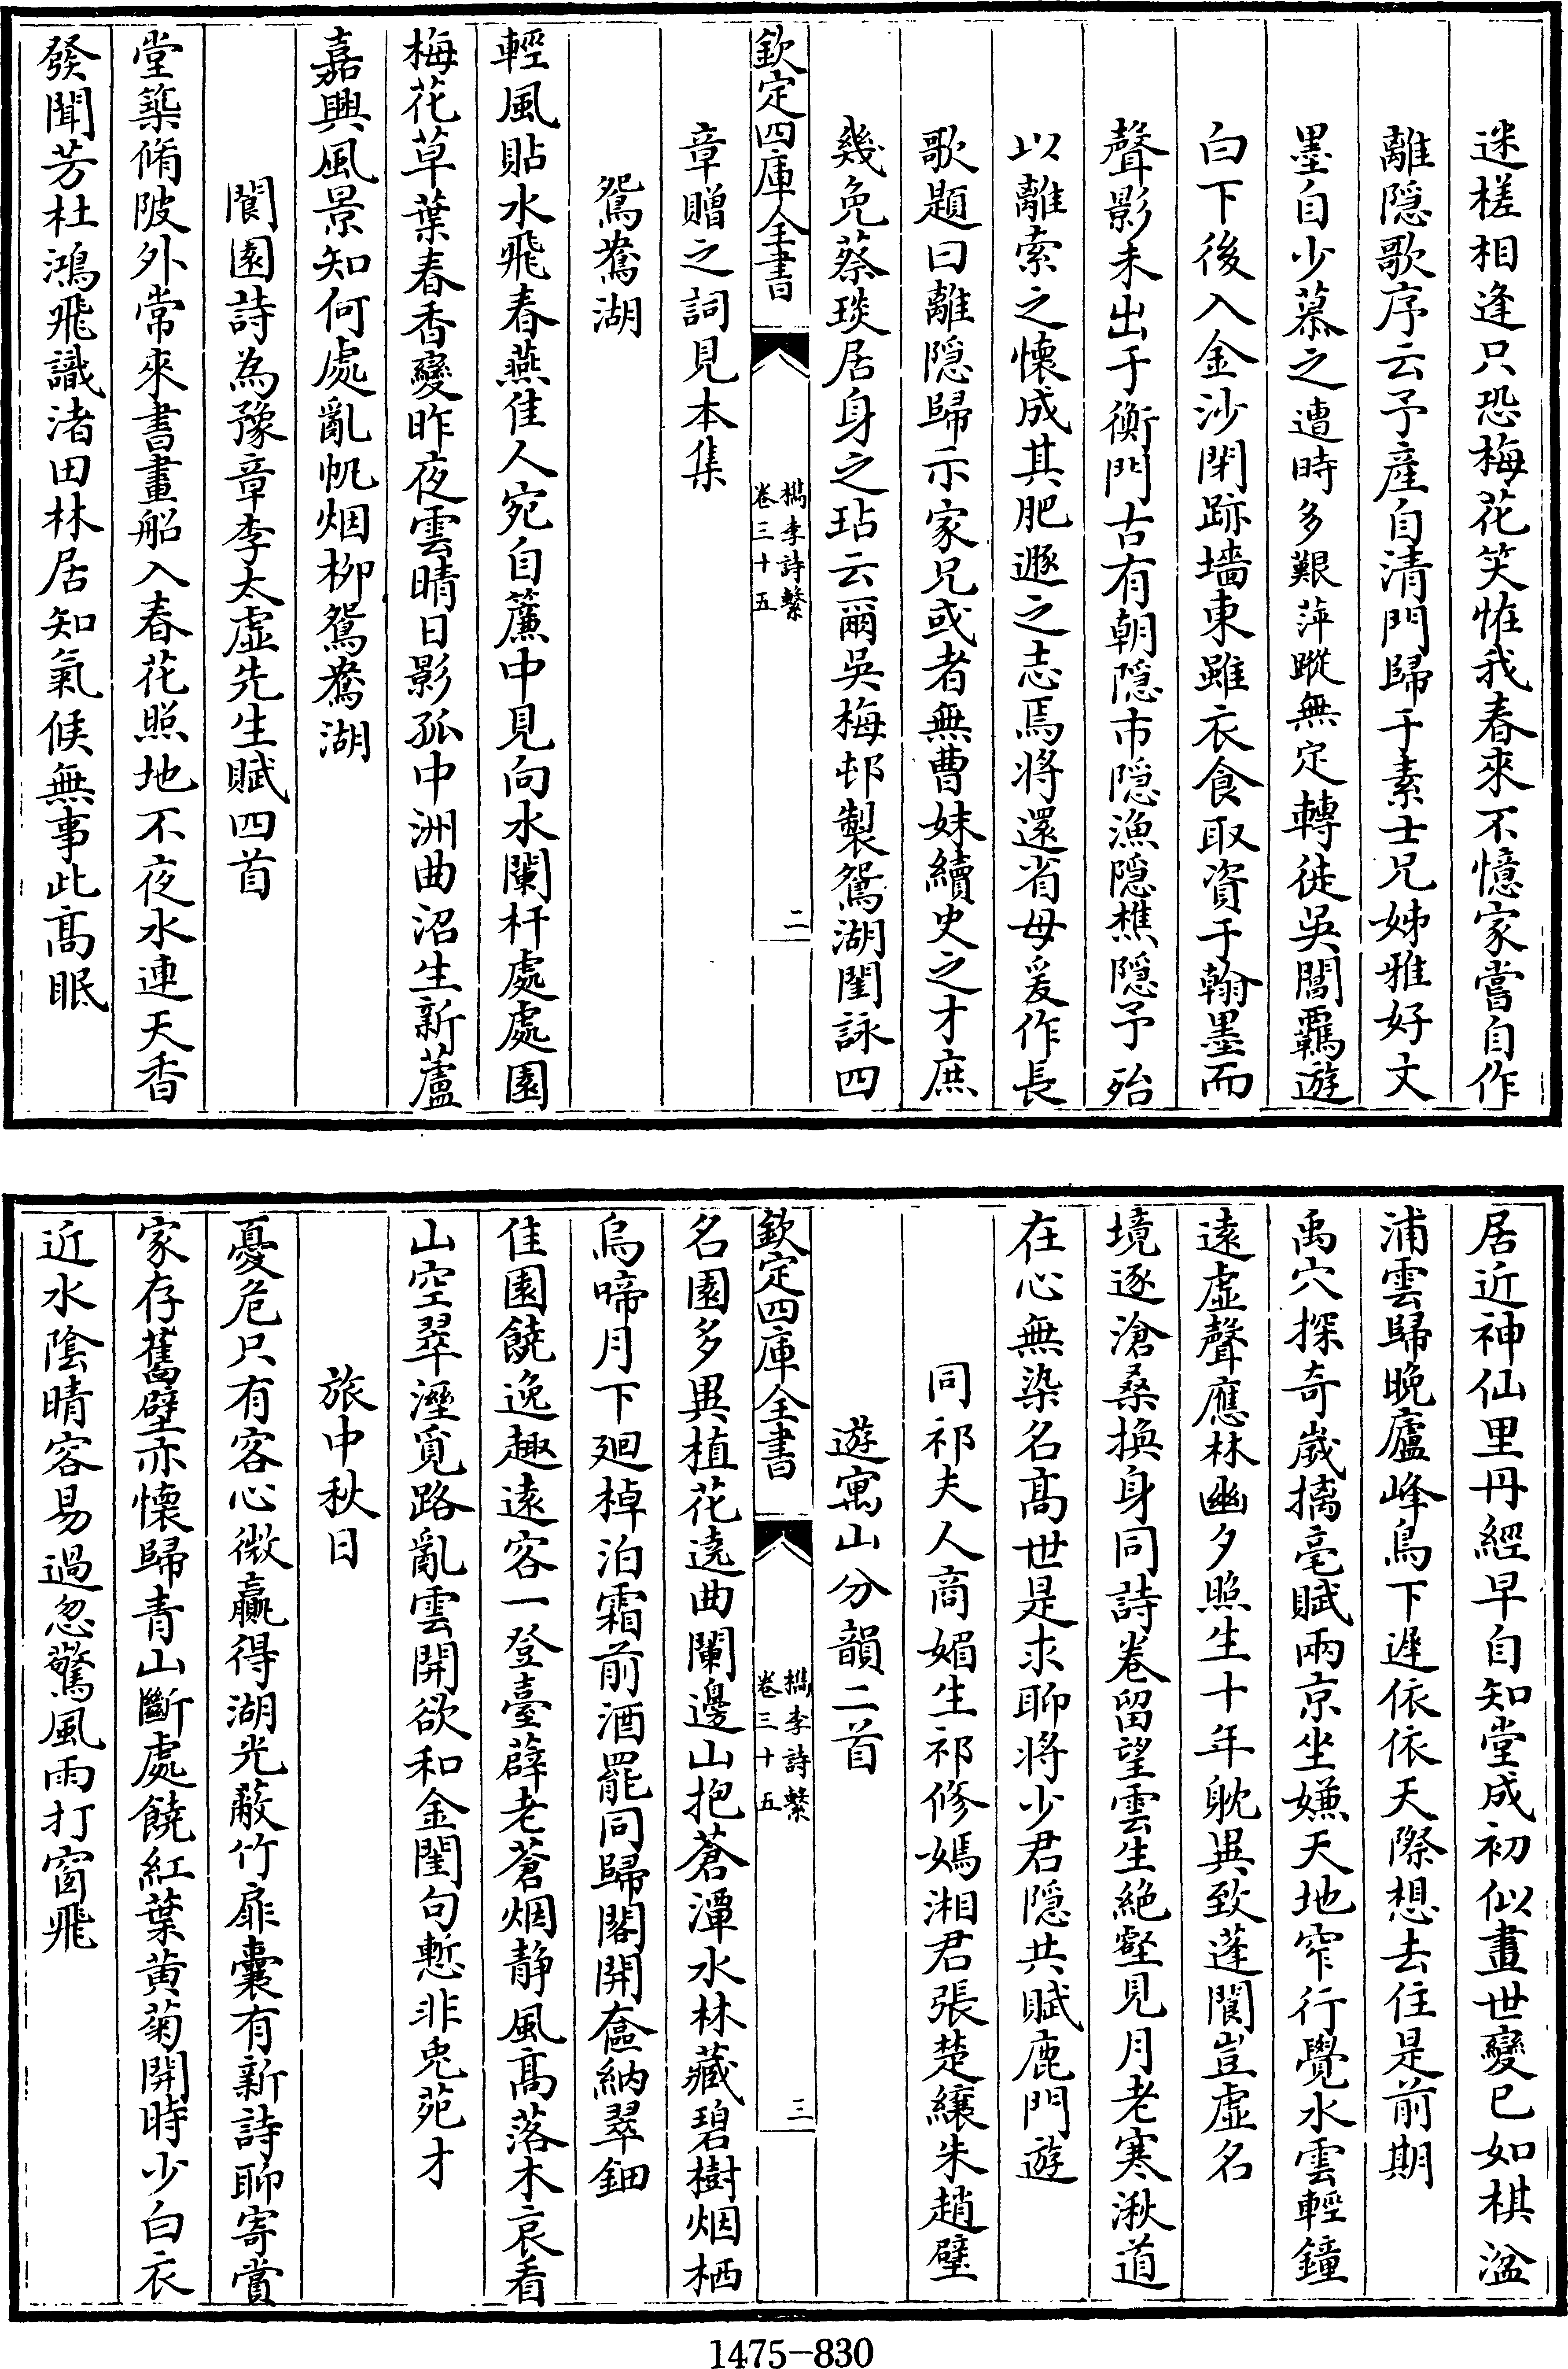 迷槎相逢只恐梅花笑恠我春來不憶家嘗自作
離隠歌序云予產自清門歸于素士兄姊雅好文
墨自少慕之遭時多艱萍蹤無定轉徙吳閶羈遊
白下後入金沙閉跡墻東雖衣食取資于翰墨而
聲影未出于衡門古有朝隠市隠漁隠樵隠予殆
以離索之懷成其肥遯之志焉將還省母爰作長
歌題曰離隠歸示家兄或者無曹妹續史之才庶
幾免蔡琰居身之玷云爾吳梅邨製鴛湖閨詠四
欽定四庫全書
檇李詩繫
卷三十五
二
章贈之詞見本集
鴛鴦湖
輕風貼水飛春燕佳人宛自簾中見向水闌杆處處園
梅花草葉春香變昨夜雲晴日影孤中洲曲沼生新蘆
嘉興風景知何處亂帆烟柳鴛鴦湖
閬園詩為豫章李太虛先生賦四首
堂築脩陂外常來書畫船入春花照地不夜水連天香
發聞芳杜鴻飛識渚田林居知氣候無事此髙眠
居近神仙里丹經早自知堂成初似畫世變已如棋湓
浦雲歸晚廬峰鳥下遲依依天際想去住是前期
禹穴探奇嵗摛毫賦兩京坐嫌天地窄行覺水雲輕鐘
遠虛聲應林幽夕照生十年躭異致蓬閬豈虛名
境逐滄桑換身同詩卷留望雲生絕壑見月老寒湫道
在心無染名髙世是求聊將少君隠共賦鹿門遊
同祁夫人商媚生祁修嫣湘君張楚纕朱趙璧
遊寓山分韻二首
欽定四庫全書
檇李詩繫
卷三十五
三
名園多異植花遶曲闌邊山抱蒼潭水林藏碧樹烟栖
烏啼月下廻棹泊霜前酒罷同歸閣開奩納翠鈿
佳園饒逸趣遠客一登臺薜老蒼烟静風髙落木哀看
山空翠溼覓路亂雲開欲和金閨句慙非兎苑才
旅中秋日
憂危只有客心微贏得湖光蔽竹扉囊有新詩聊寄賞
家存舊壁亦懷歸青山斷處饒紅葉黃菊開時少白衣
近水陰晴容易過忽驚風雨打窗飛
1475-830